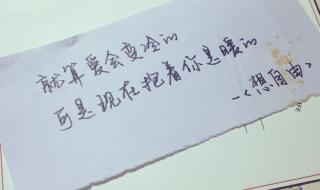 就算爱会变冷的
可是现在抱着你是暖的
—《想自由》